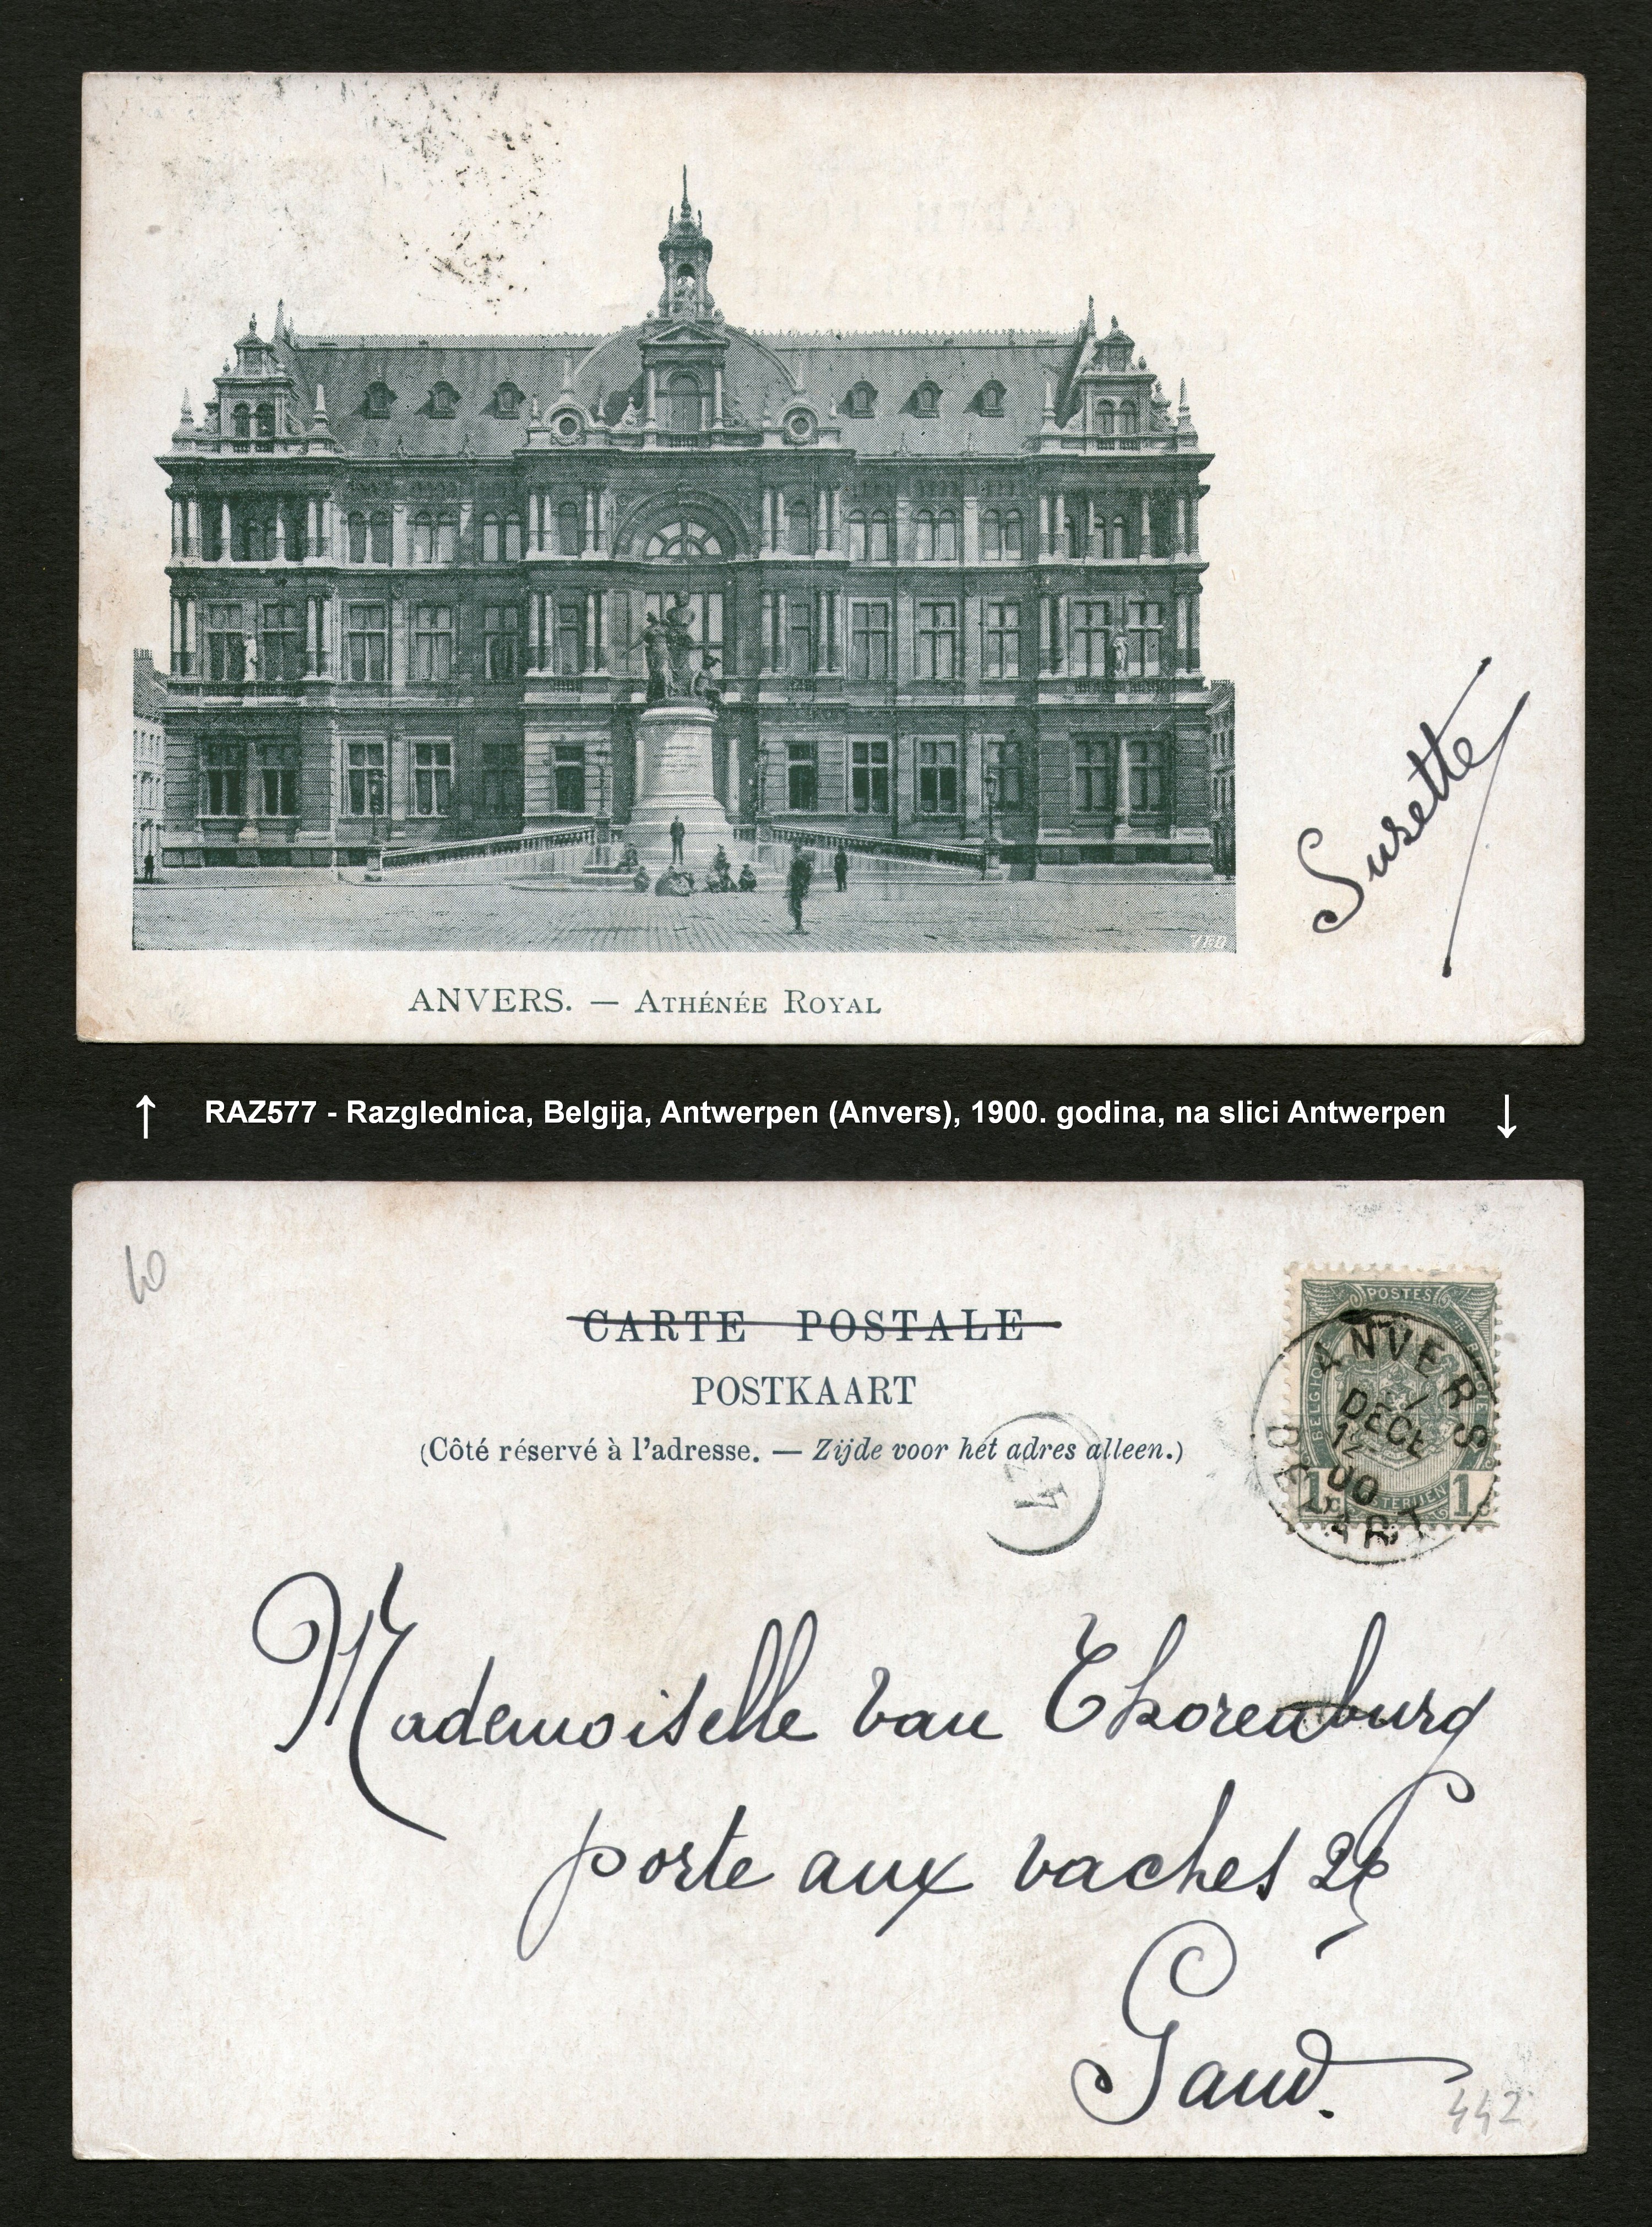 Susette
VED
ANVERS. — ATHÉNÉE ROYAL
↑ RAZ577 - Razglednica, Belgija, Antwerpen (Anvers), 1900. godina, na slici Antwerpen ↓
10
CARTE POSTALE
POSTKAART
(Côté réservé à l'adresse. — Zijde voor het adres alleen.)
POSTES
BELGIQUE
1c POSTERIJEN 1c
ANVERS
DECE
12
00
DEPART
4
Mademoiselle van Thorenburg
porte aux vaches
Gand.
442